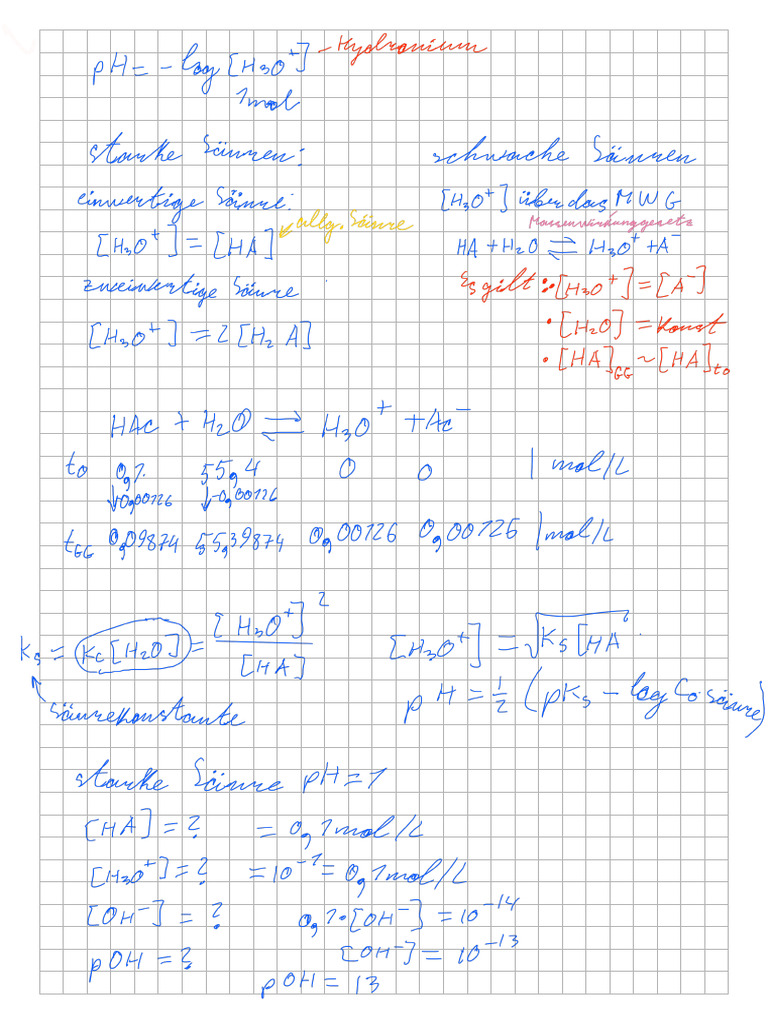 pH = - log [H₃O⁺] - Hydronium
1mol
starke Säuren:
einwertige Säure:
[H₃O⁺] = [HA] allg. Säure
zweiwertige Säure
[H₃O⁺] = 2 [H₂A]
schwache Säuren
[H₃O⁺] über das MWG
Massenwirkunggesetz
HA + H₂O ⇌ H₃O⁺ + A⁻
Es gilt: • [H₃O⁺] = [A⁻]
• [H₂O] = konst
• [HA]GG ~ [HA]t0
HAc + H₂O ⇌ H₃O⁺ + Ac⁻
t0 0,1 55,4 0 0 | mol/L
↓-0,00126 ↓-0,00126
tGG 0,09874 55,39874 0,00126 0,00126 | mol/L
Ks = Kc [H₂O] = [H₃O⁺]² / [HA]
Säurekonstante
[H₃O⁺] = √Ks [HA
pH = ½ (pKs - log C0 Säure)
starke Säure pH = 1
[HA] = ? = 0,1 mol/L
[H₃O⁺] = ? = 10⁻¹ = 0,1 mol/L
[OH⁻] = ? 0,1 • [OH⁻] = 10⁻¹⁴
pOH = ? [OH⁻] = 10⁻¹³
pOH = 13